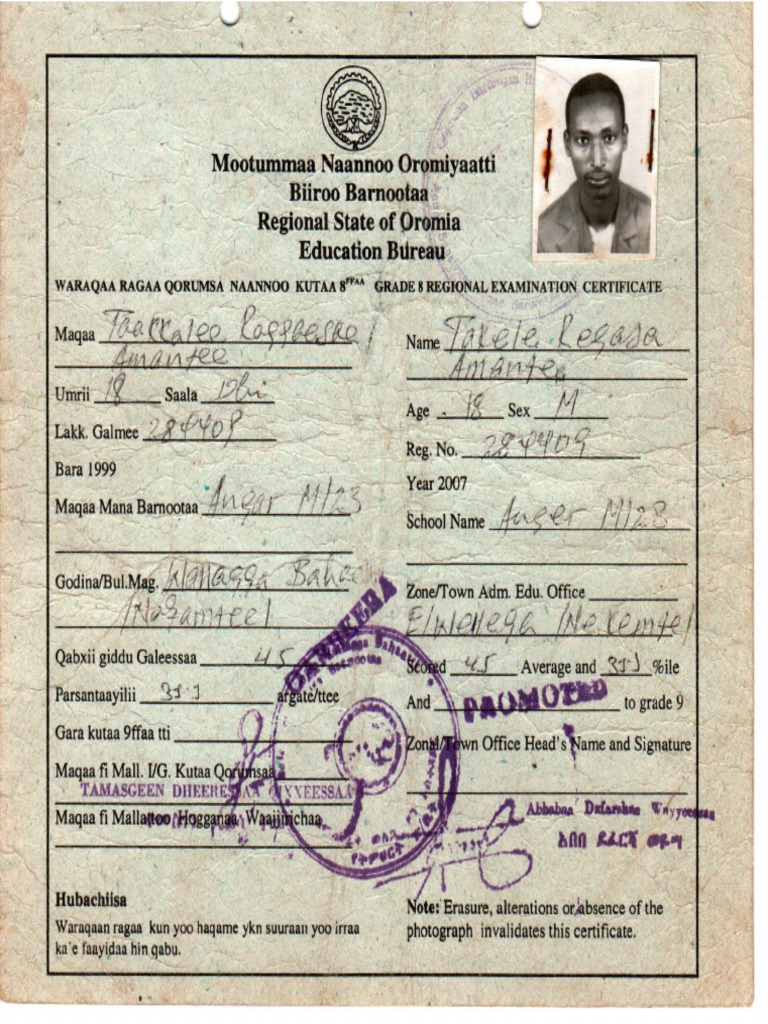 Mootummaa Naannoo Oromiyaatti
Biiroo Barnootaa
Regional State of Oromia
Education Bureau
WARAQAA RAGAA QORUMSA NAANNOO KUTAA 8FFAA GRADE 8 REGIONAL EXAMINATION CERTIFICATE
Maqaa
Amantee
Umrii 18 Saala Dhi
Lakk. Galmee 284409
Bara 1999
Maqaa Mana Barnootaa Angar M/23
Godina/Bul.Mag. Wallagga Bahaa
Qabxii giddu Galeessaa 45
Parsantaayilii argate/ttee
Gara kutaa 9ffaa tti
Maqaa fi Mall. I/G. Kutaa Qorumsaa
TAMASGEEN DHEERESSAA QIXXEESSAA
Maqaa fi Mallattoo Hogganaa Waajjirichaa
Hubachiisa
Waraqaan ragaa kun yoo haqame ykn suuraan yoo irraa
ka'e faayidaa hin qabu.
Name Takele Regasa
Amante
Age 18 Sex M
Reg. No. 284409
Year 2007
School Name Anger M/23
Zone/Town Adm. Edu. Office
E/Wellega /Nekemte/
Scored 45 Average and %ile
And PROMOTED to grade 9
Zonal/Town Office Head's Name and Signature
Abbabaa Dafarshaa Wayyeessaa
Note: Erasure, alterations or absence of the
photograph invalidates this certificate.
DABEERA